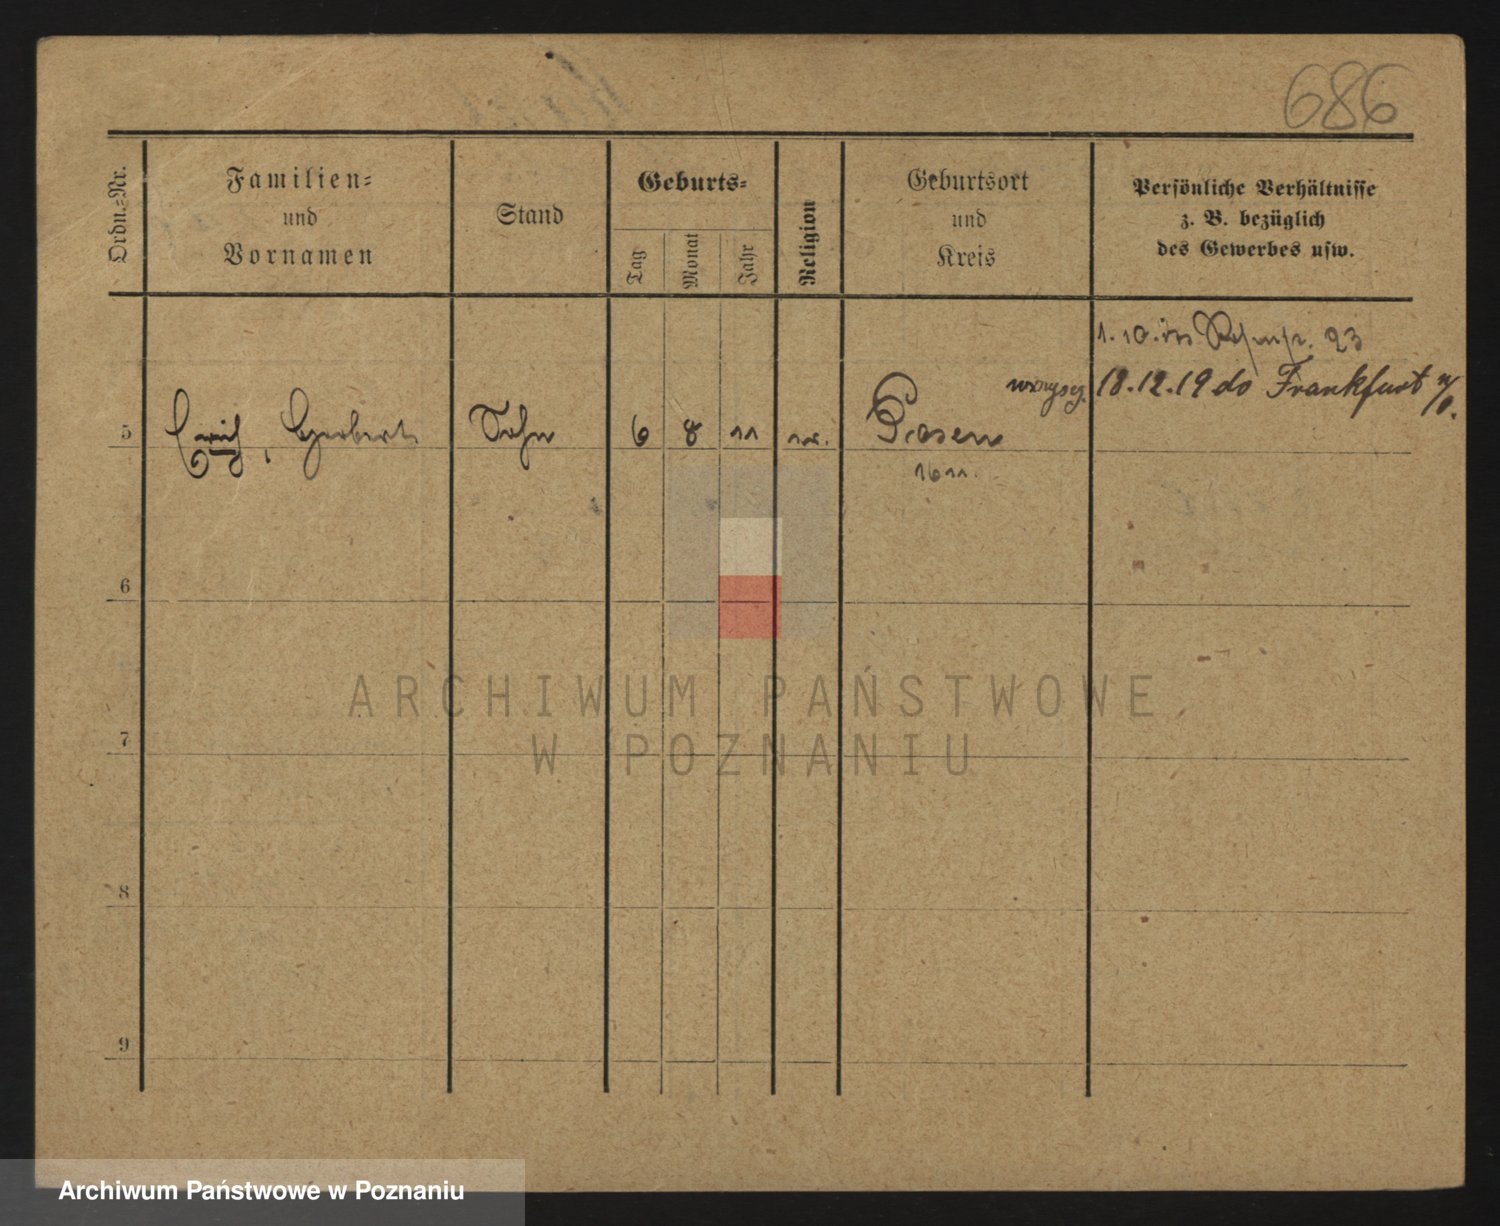 686
Ordn.-Nr.
Familien-
und
Vornamen
Stand
Geburts-
Tag
Monat
Jahr
Religion
Geburtsort
und
Kreis
Persönliche Verhältnisse
z. B. bezüglich
des Gewerbes usw.
1. 10. 23
18.12.19 do Frankfurt n/O.
5 Erich, Herbert Sohn 6 8 11 Posen
1611.
6
7
8
9
ARCHIWUM PAŃSTWOWE
W POZNANIU
Archiwum Państwowe w Poznaniu